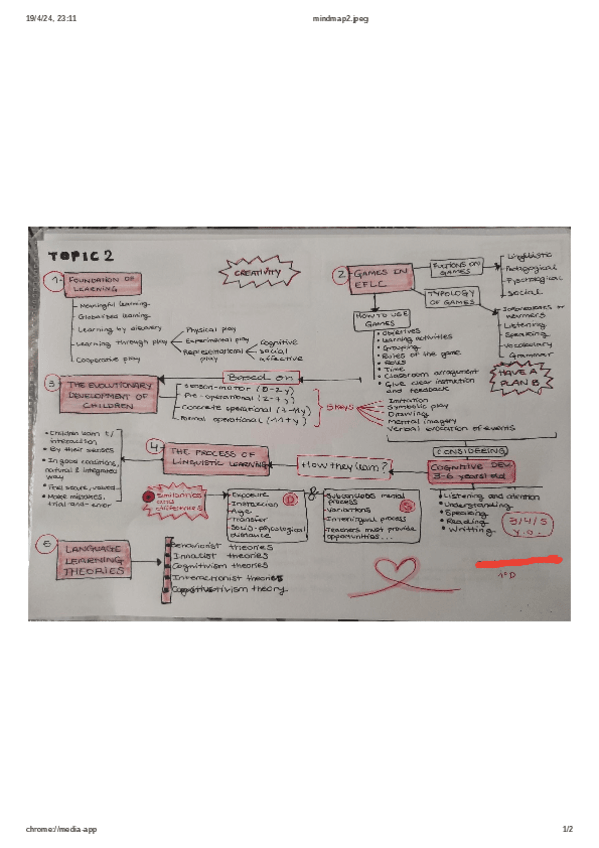 19/4/24, 23:11
mindmap2.jpeg
TOPIC 2
CREATIVITY
1- FOUNDATION OF LEARNING
Meaningful learning
Globalised learning
Learning by discovery
Learning through play
Physical play
Experimental play
Representational play
Cognitive
Social
Affective
Cooperative play
2- GAMES IN EFLC
GAMES
Linguistic
Pedagogical
Social
TYPOLOGY OF GAMES
Listening
Speaking
Vocabulary
Grammar
HAVE A PLAN B
HOW TO USE GAMES
Objectives
Learning activities
Grouping
Rules of the game
Roles
Time
Classroom arrangement
Give clear instruction and feedback
3 THE EVOLUTIONARY DEVELOPMENT OF CHILDREN
Based on
Sensori-motor (0-2y)
Pre-operational (2-7y)
Concrete operational (7-11y)
Formal operational (11+y)
5 KEYS
Imitation
Symbolic play
Drawing
Mental imagery
Verbal evocation of events
CONSIDERING
COGNITIVE DEV. 3-6 years old
Listening and attention
Understanding
Speaking
Reading
Writting
3/4/5 y.o.
How they learn?
4- THE PROCESS OF LINGUISTIC LEARNING
Children learn t/ interaction
By their senses
In good conditions, natural & integrated way
Make mistakes, trial-and-error
Similarities and differences
Exposure
Interaction
Age
Transfer
Socio-phycological distance
D
&
mental process
Variations
Interlingual process
Teachers must provide opportunities...
S
5 LANGUAGE LEARNING THEORIES
Behaviorist theories
Innatist theories
Cognitivism theories
Interactionist theories
theory.
1ºD
chrome://media-app
1/2